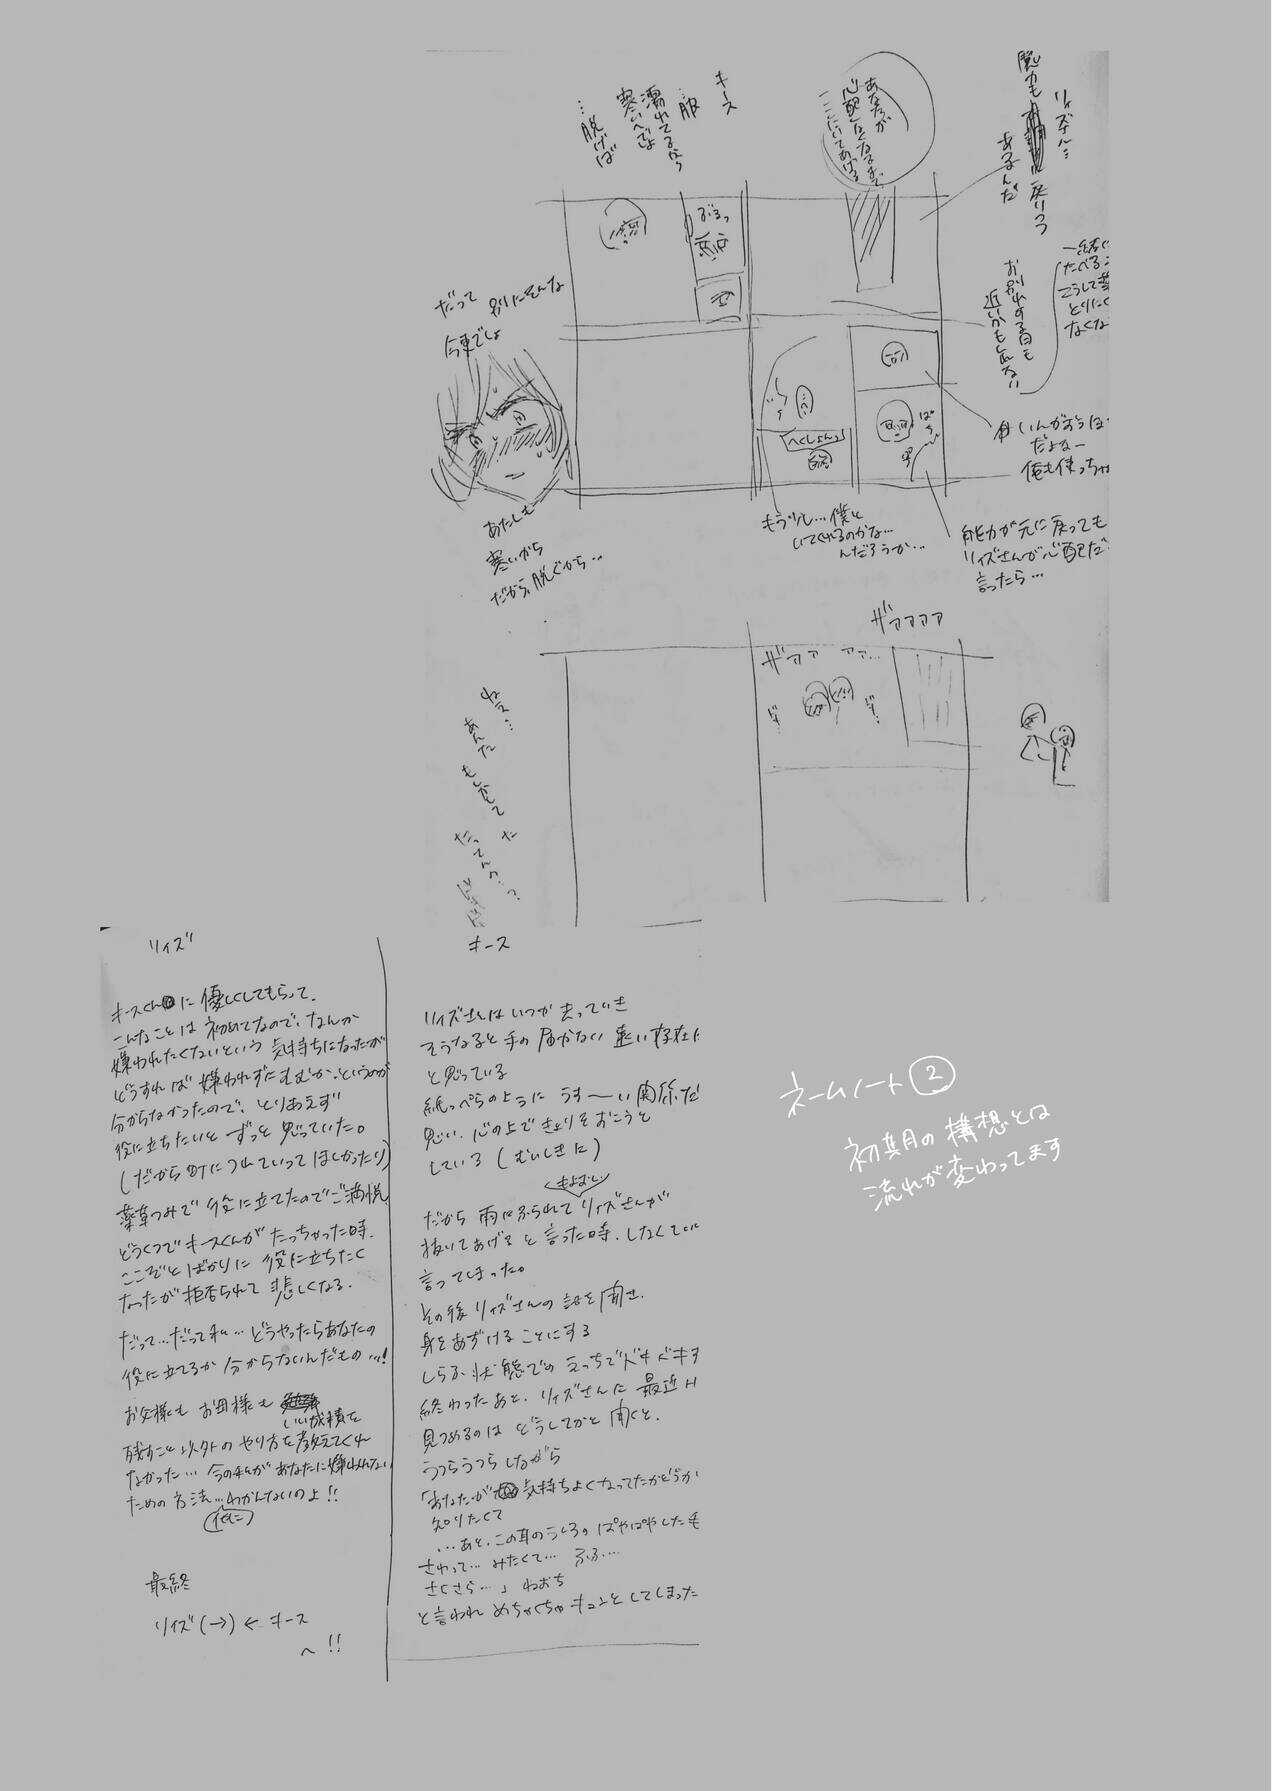 リィズさん…
魔力も
戻りつつ
あるんだ
おわかれする日も
近いかもしれない
一緒に
たべる
こうして薬
とりに
なくな
あなたが
心配なくなるまで
ここにいてあげる
キース
…服
濡れてるから
寒いでしょ
…脱げば
ぶるっ
だって
別にそんな
今更でしょ
あたしも
寒いから
だから、脱ぐから…
へくしょんっ
もう少し…僕と
いてくれるのかな…
んだろうか…
だよなー
俺も使っちゃ
能力が元に戻っても
リィズさんが心配だ
言ったら…
ザァァァァ
ザァァ ァァ…
ねえ…
あんた
もしかして
たってんの…?
リィズ
キースくんに優しくしてもらって、
こんなことは初めてなので、なんか
嫌われたくないという気持ちになったが
どうすれば嫌われずにすむか、というのが
分からなかったので、とりあえず
役に立ちたいとずっと思っていた。
(だから町につれていってほしかったり)
薬草つみで役に立てたのでご満悦
どうくつでキースくんがたっちゃった時、
ここぞとばかりに役に立ちたく
なったが拒否られて悲しくなる。
だって…だって私…どうやったらあなたの
役に立てるか分からないんだもの…!
お父様もお母様も
いい成績を
残すこと以外のやり方を教えてくれ
なかった…今の私があなたに嫌われない
ための方法…わかんないのよ!!
(他に)
最終
リィズ(→)←キース
へ!!
キース
リィズさんはいつか去っていき
そうなると手の届かない遠い存在に
と思っている
紙っぺらのようにうす〜い関係だ
思い、心の上できょりをおこうと
している(むいしきに)
だから雨にふられてリィズさんが
抜いてあげると言った時、しなくていい
言ってしまった。
その後リィズさんの話を聞き、
身をあずけることにする
しらふ状態でのえっちでドキドキする
終わったあと、リィズさんに最近
見つめるのはどうしてかと聞くと、
うつらうつらしながら
「あなたが気持ちよくなってたかどうか
知りたくて
…あと、この耳のうしろのぱやぱやした毛
さわって…みたくて…ふふ…
さくさら…」ねおち
と言われめちゃくちゃキュンとしてしまった
ネームノート②
初期の構想とは
流れが変わってます